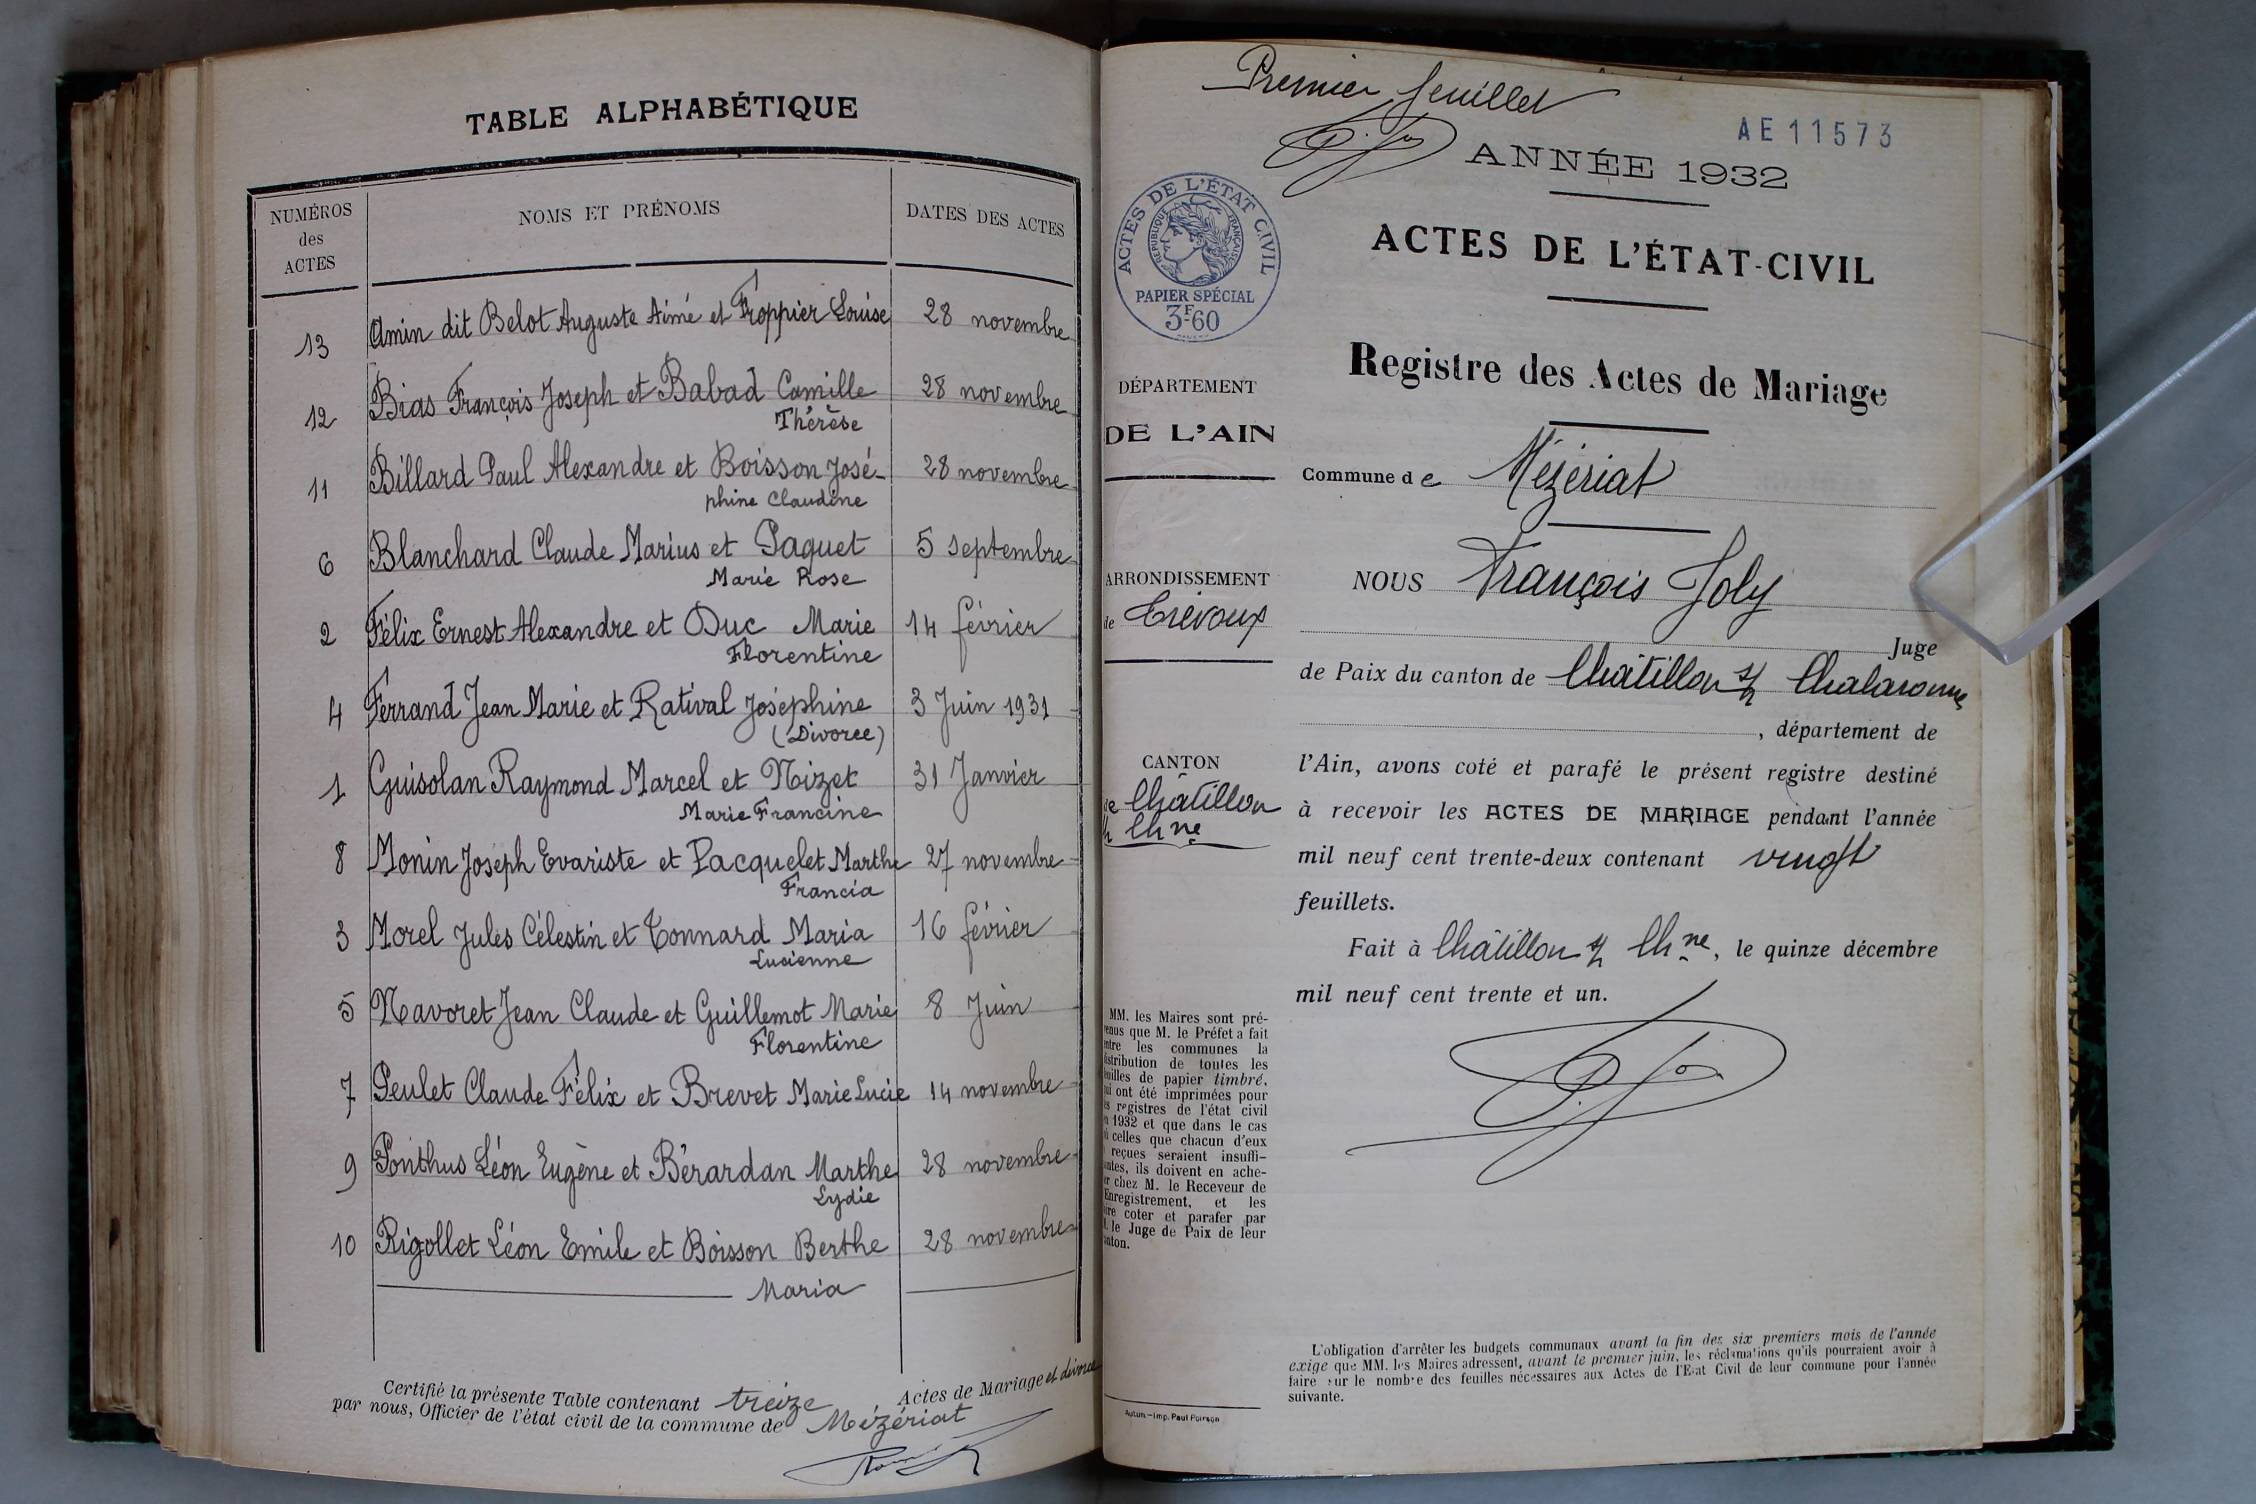 TABLE ALPHABÉTIQUE
NUMÉROS des ACTES NOMS ET PRÉNOMS DATES DES ACTES
13 Amin dit Belot Auguste Aimé et Froppier Louise 28 novembre
12 Bias François Joseph et Babad Camille 28 novembre
Thérèse
11 Billard Paul Alexandre et Boisson José- 28 novembre
phine Claudine
6 Blanchard Claude Marius et Paquet 5 septembre
Marie Rose
2 Félix Ernest Alexandre et Duc Marie 14 février
Florentine
4 Ferrand Jean Marie et Ratival Joséphine 3 Juin 1931
(Divorce)
1 Guisolan Raymond Marcel et Nizet 31 Janvier
Marie Francine
8 Monin Joseph Evariste et Pacquelet Marthe 27 novembre
Francia
3 Morel Jules Célestin et Tonnard Maria 16 février
Lucienne
5 Navoret Jean Claude et Guillemot Marie 8 Juin
Florentine
7 Peulet Claude Félix et Brevet Marie Lucie 14 novembre
9 Ponthus Léon Eugène et Bérardan Marthe 28 novembre
Lydie
10 Rigollet Léon Emile et Boisson Berthe 28 novembre
Maria
Certifié la présente Table contenant treize Actes de Mariage et divorce
par nous, Officier de l'état civil de la commune de Mézériat
Premier feuillet
AE11573
ANNÉE 1932
ACTES DE L'ÉTAT CIVIL
RÉPUBLIQUE FRANÇAISE
PAPIER SPÉCIAL
3F60
ACTES DE L'ÉTAT-CIVIL
Registre des Actes de Mariage
DÉPARTEMENT
DE L'AIN
Commune de Mézériat
ARRONDISSEMENT
de Trévoux
NOUS François Joly
Juge
de Paix du canton de Châtillon s/ Chalaronne
, département de
CANTON
de Châtillon
s/ Chne
l'Ain, avons coté et parafé le présent registre destiné
à recevoir les ACTES DE MARIAGE pendant l'année
mil neuf cent trente-deux contenant vingt
feuillets.
Fait à Châtillon s/ Chne, le quinze décembre
mil neuf cent trente et un.
MM. les Maires sont pré-
venus que M. le Préfet a fait
entre les communes la
distribution de toutes les
feuilles de papier timbré,
qui ont été imprimées pour
les registres de l'état civil
en 1932 et que dans le cas
où celles que chacun d'eux
a reçues seraient insuffi-
santes, ils doivent en ache-
ter chez M. le Receveur de
l'Enregistrement, et les
faire coter et parafer par
M. le Juge de Paix de leur
canton.
L'obligation d'arrêter les budgets communaux avant la fin des six premiers mois de l'année
exige que MM. les Maires adressent, avant le premier juin, les réclamations qu'ils pourraient avoir à
faire sur le nombre des feuilles nécessaires aux Actes de l'Etat Civil de leur commune pour l'année
suivante.
Autun.-Imp. Paul Poirson